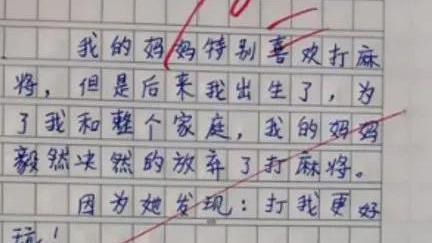 我的妈妈特别喜欢打麻
将，但是后来我出生了，为
了我和整个家庭，我的妈妈
毅然决然的放弃了打麻将。
因为她发现：打我更好
玩！